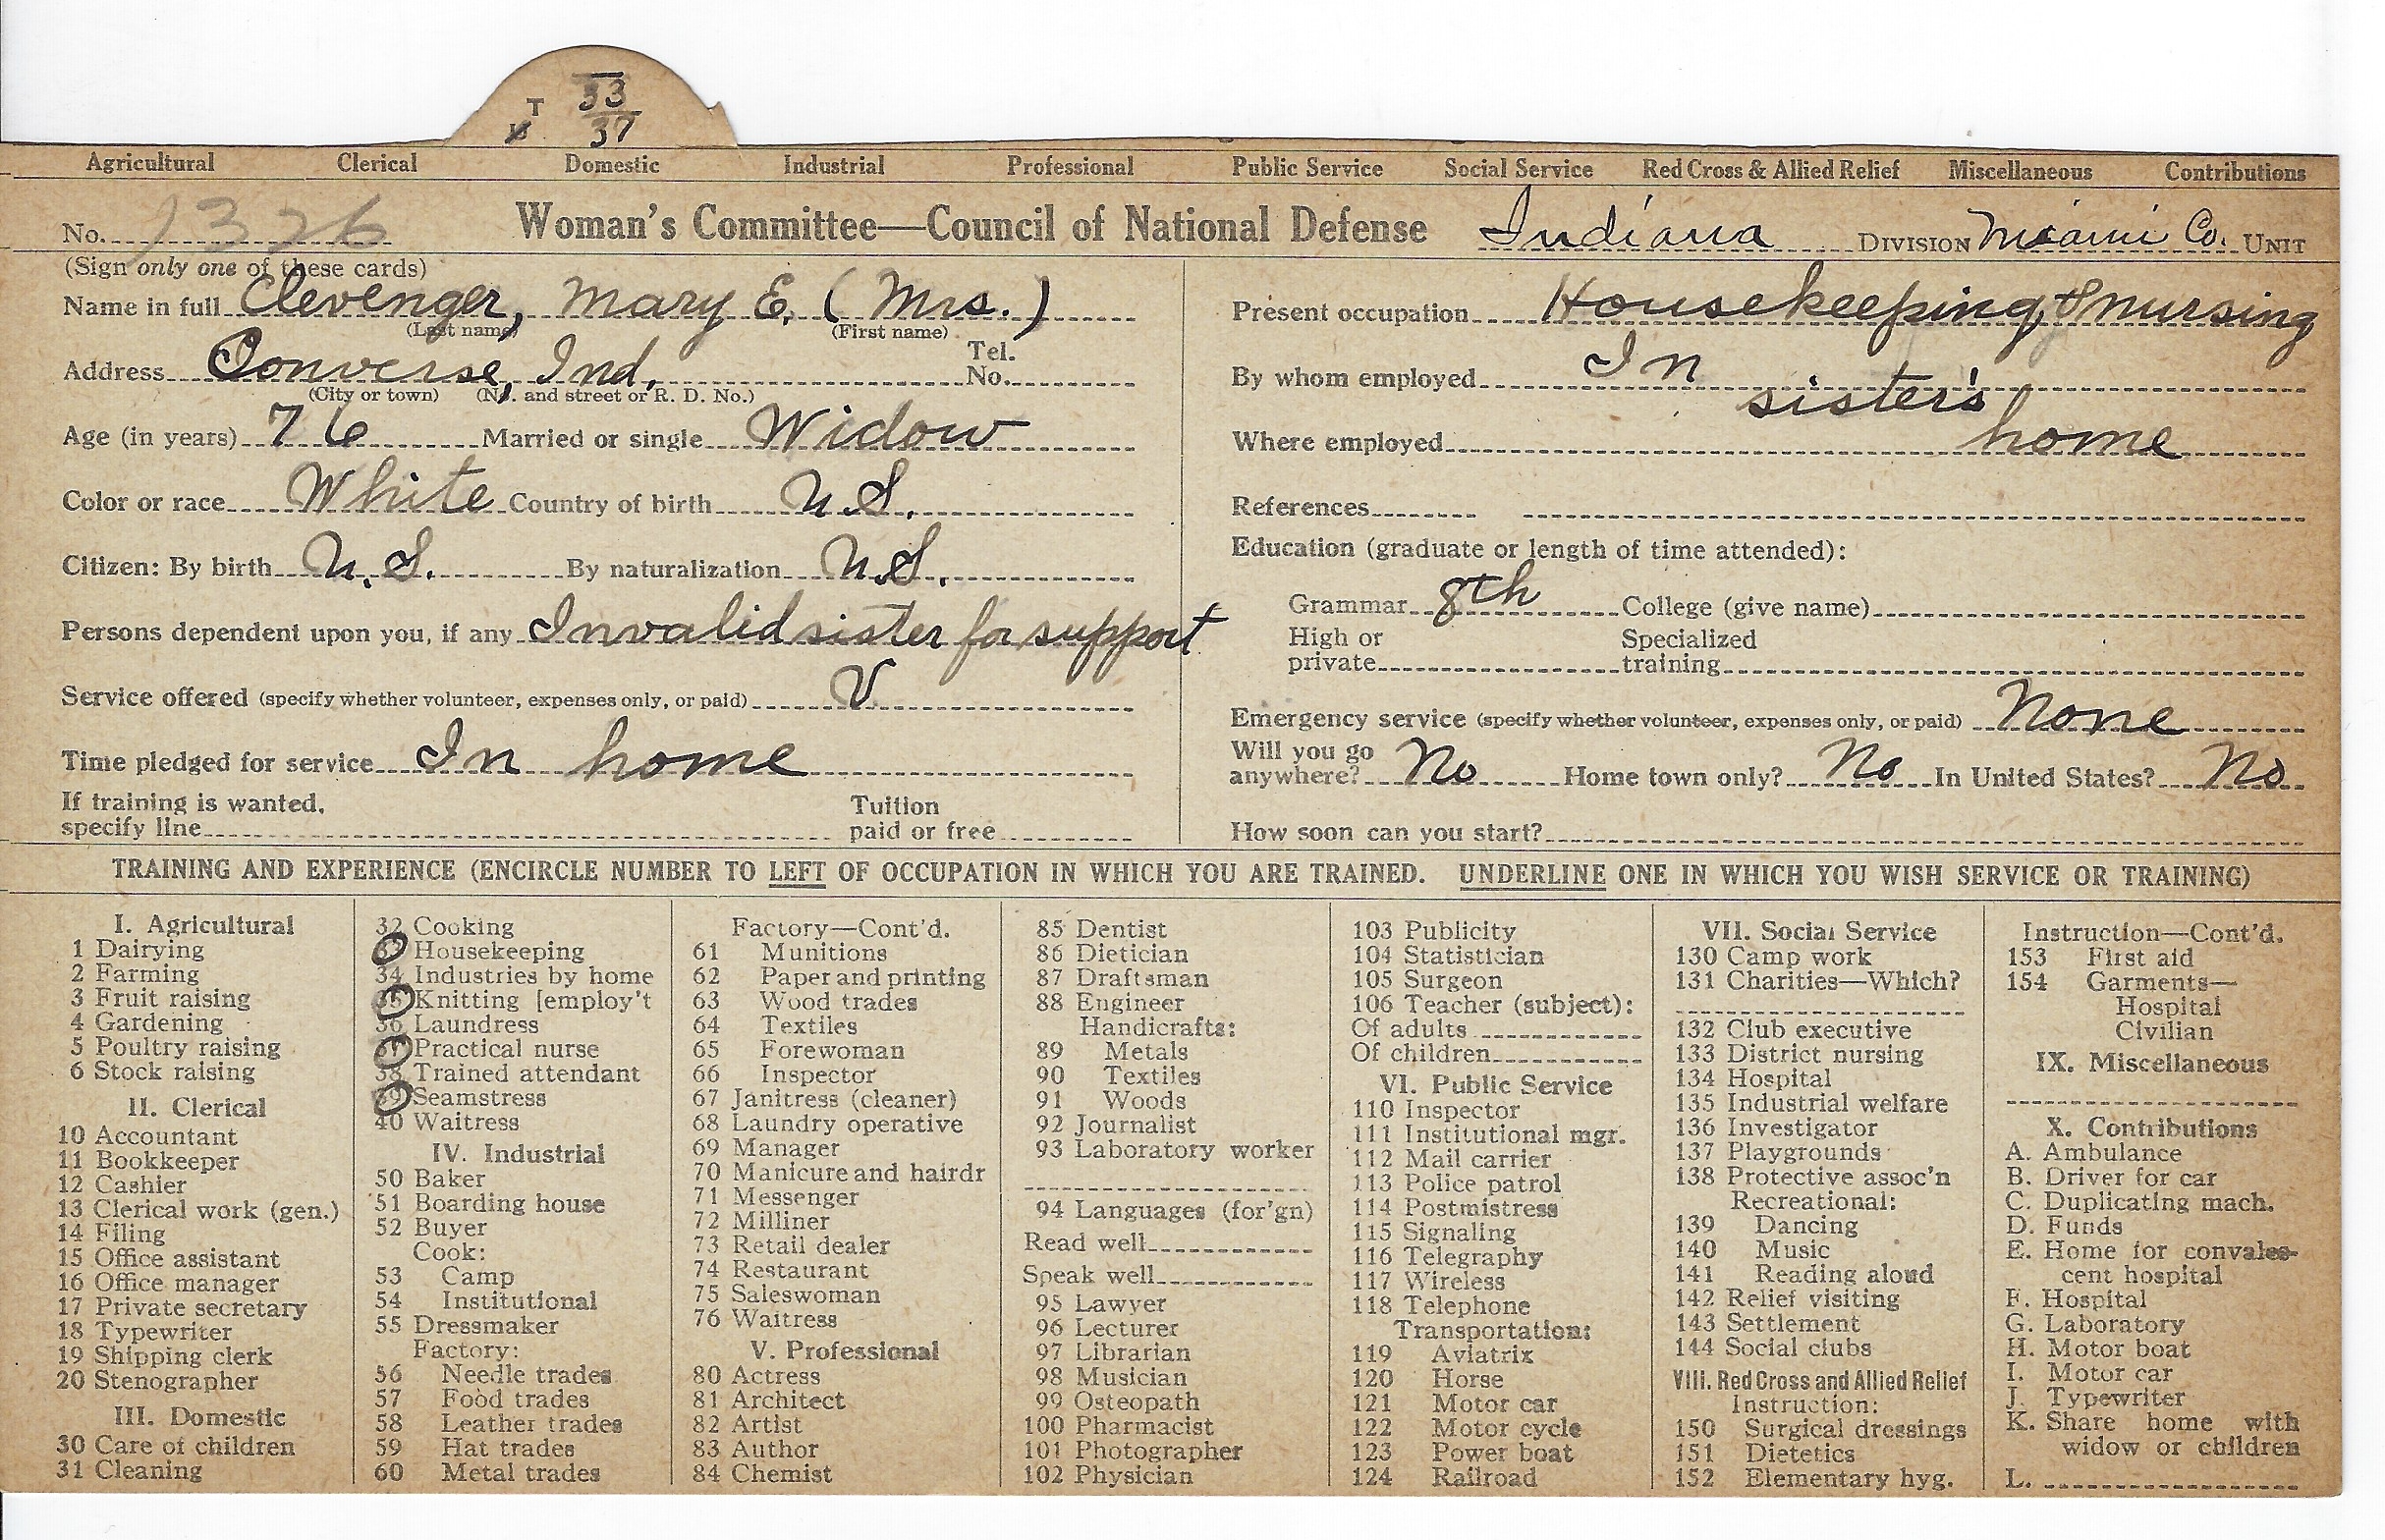 T 33
37
Agricultural Clerical Domestic Industrial Professional Public Service Social Service Red Cross & Allied Relief Miscellaneous Contributions
No. 1326 Woman's Committee—Council of National Defense Indiana DIVISION Miami Co. UNIT
(Sign only one of these cards)
Name in full Clevenger, Mary E. (Mrs.)
(Last name) (First name)
Address Converse, Ind. Tel. No.
(City or town) (No. and street or R. D. No.)
Age (in years) 76 Married or single Widow
Color or race White Country of birth U.S.
Citizen: By birth U.S. By naturalization U.S.
Persons dependent upon you, if any Invalid sister for support
Service offered (specify whether volunteer, expenses only, or paid) V
Time pledged for service In home
If training is wanted, specify line Tuition paid or free
Present occupation Housekeeping & nursing
By whom employed In sister's
Where employed home
References
Education (graduate or length of time attended):
Grammar 8th College (give name)
High or private Specialized training
Emergency service (specify whether volunteer, expenses only, or paid) None
Will you go anywhere? No Home town only? No In United States? No
How soon can you start?
TRAINING AND EXPERIENCE (ENCIRCLE NUMBER TO LEFT OF OCCUPATION IN WHICH YOU ARE TRAINED. UNDERLINE ONE IN WHICH YOU WISH SERVICE OR TRAINING)
I. Agricultural
1 Dairying
2 Farming
3 Fruit raising
4 Gardening
5 Poultry raising
6 Stock raising
II. Clerical
10 Accountant
11 Bookkeeper
12 Cashier
13 Clerical work (gen.)
14 Filing
15 Office assistant
16 Office manager
17 Private secretary
18 Typewriter
19 Shipping clerk
20 Stenographer
III. Domestic
30 Care of children
31 Cleaning
32 Cooking
33 Housekeeping
34 Industries by home
35 Knitting [employ't
36 Laundress
37 Practical nurse
38 Trained attendant
39 Seamstress
40 Waitress
IV. Industrial
50 Baker
51 Boarding house
52 Buyer
Cook:
53 Camp
54 Institutional
55 Dressmaker
Factory:
56 Needle trades
57 Food trades
58 Leather trades
59 Hat trades
60 Metal trades
Factory—Cont'd.
61 Munitions
62 Paper and printing
63 Wood trades
64 Textiles
65 Forewoman
66 Inspector
67 Janitress (cleaner)
68 Laundry operative
69 Manager
70 Manicure and hairdr
71 Messenger
72 Milliner
73 Retail dealer
74 Restaurant
75 Saleswoman
76 Waitress
V. Professional
80 Actress
81 Architect
82 Artist
83 Author
84 Chemist
85 Dentist
86 Dietician
87 Draftsman
88 Engineer
Handicrafts:
89 Metals
90 Textiles
91 Woods
92 Journalist
93 Laboratory worker
94 Languages (for'gn)
Read well
Speak well
95 Lawyer
96 Lecturer
97 Librarian
98 Musician
99 Osteopath
100 Pharmacist
101 Photographer
102 Physician
103 Publicity
104 Statistician
105 Surgeon
106 Teacher (subject):
Of adults
Of children
VI. Public Service
110 Inspector
111 Institutional mgr.
112 Mail carrier
113 Police patrol
114 Postmistress
115 Signaling
116 Telegraphy
117 Wireless
118 Telephone
Transportation:
119 Aviatrix
120 Horse
121 Motor car
122 Motor cycle
123 Power boat
124 Railroad
VII. Social Service
130 Camp work
131 Charities—Which?
132 Club executive
133 District nursing
134 Hospital
135 Industrial welfare
136 Investigator
137 Playgrounds
138 Protective assoc'n
Recreational:
139 Dancing
140 Music
141 Reading aloud
142 Relief visiting
143 Settlement
144 Social clubs
VIII. Red Cross and Allied Relief
Instruction:
150 Surgical dressings
151 Dietetics
152 Elementary hyg.
Instruction—Cont'd.
153 First aid
154 Garments—
Hospital
Civilian
IX. Miscellaneous
X. Contributions
A. Ambulance
B. Driver for car
C. Duplicating mach.
D. Funds
E. Home for convales-
cent hospital
F. Hospital
G. Laboratory
H. Motor boat
I. Motor car
J. Typewriter
K. Share home with
widow or children
L.